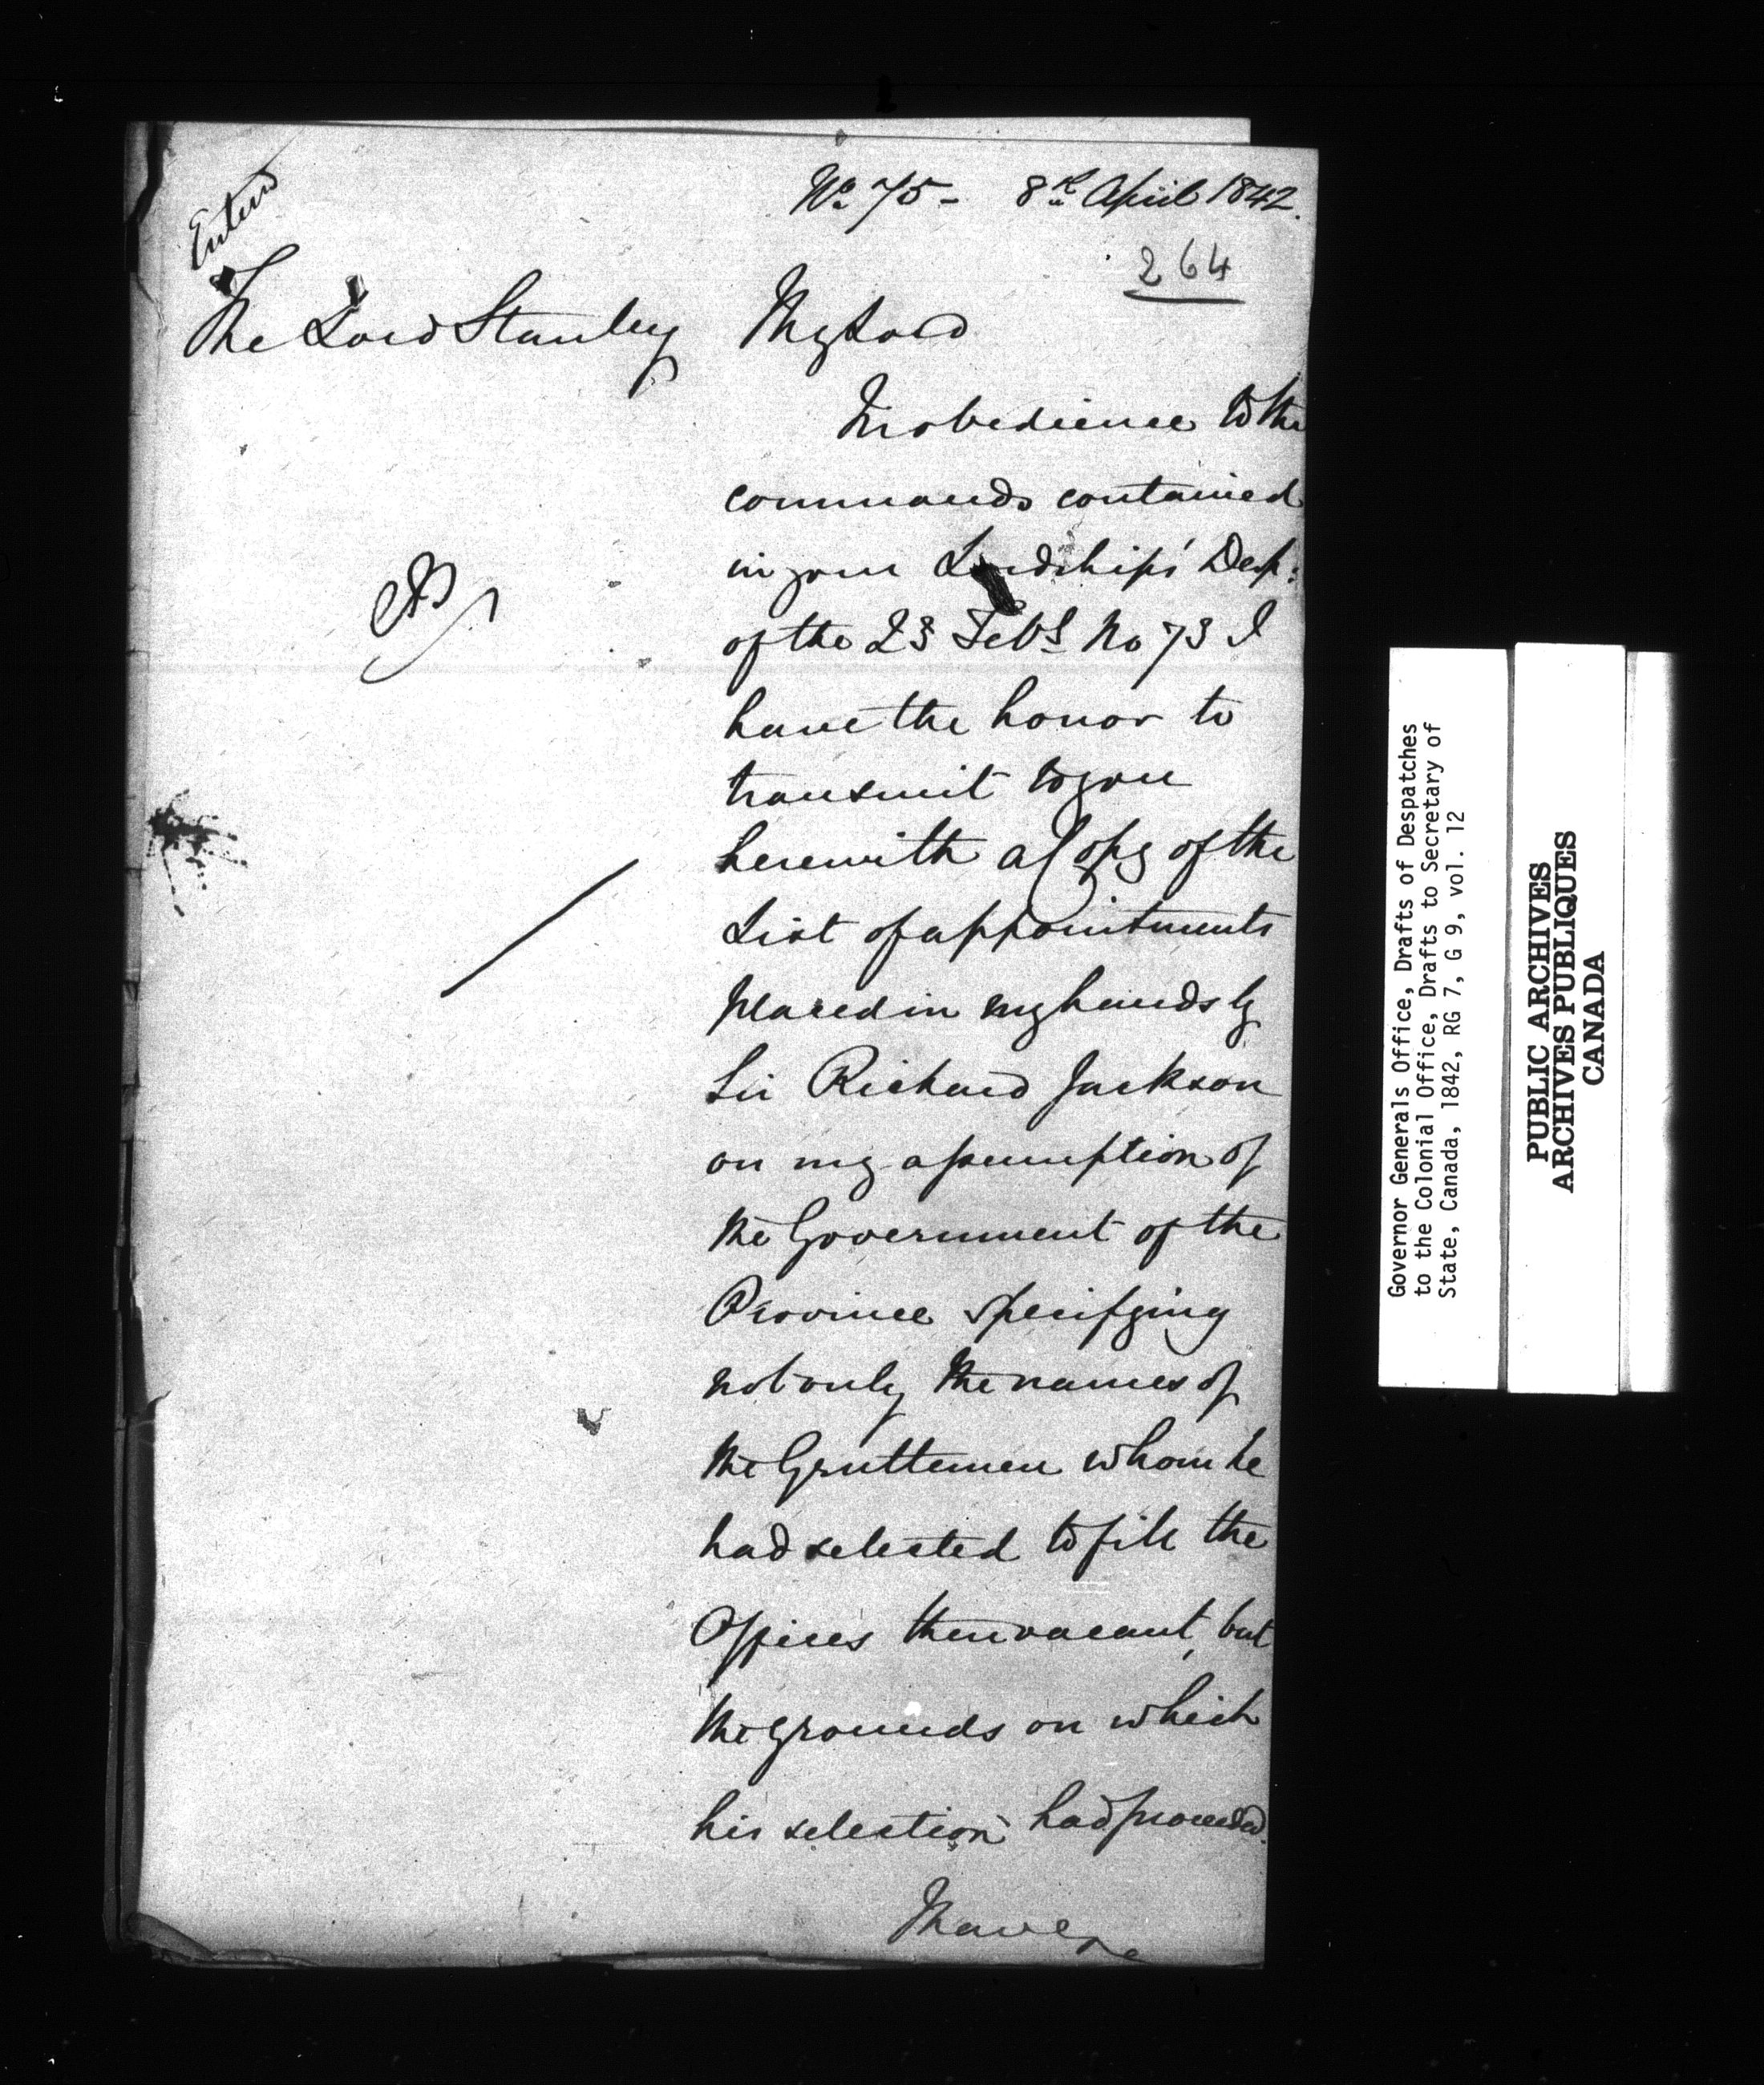 Enterd
No. 75 - 8th April 1842.
264
The Lord Stanley
My Lord
In obedience to the
commands contained
in your Lordship's Desp:
of the 23 Feby No 73 I
have the honor to
transmit to you
herewith a Copy of the
List of appointments
placed in my hands by
Sir Richard Jackson
on my assumption of
the Government of the
Province specifying
not only the names of
the Gentlemen whom he
had selected to fill the
Offices then vacant, but
the grounds on which
his selection had proceeded.
I have &c
Governor Generals Office, Drafts of Despatches
to the Colonial Office, Drafts to Secretary of
State, Canada, 1842, RG 7, G 9, vol. 12
PUBLIC ARCHIVES
ARCHIVES PUBLIQUES
CANADA